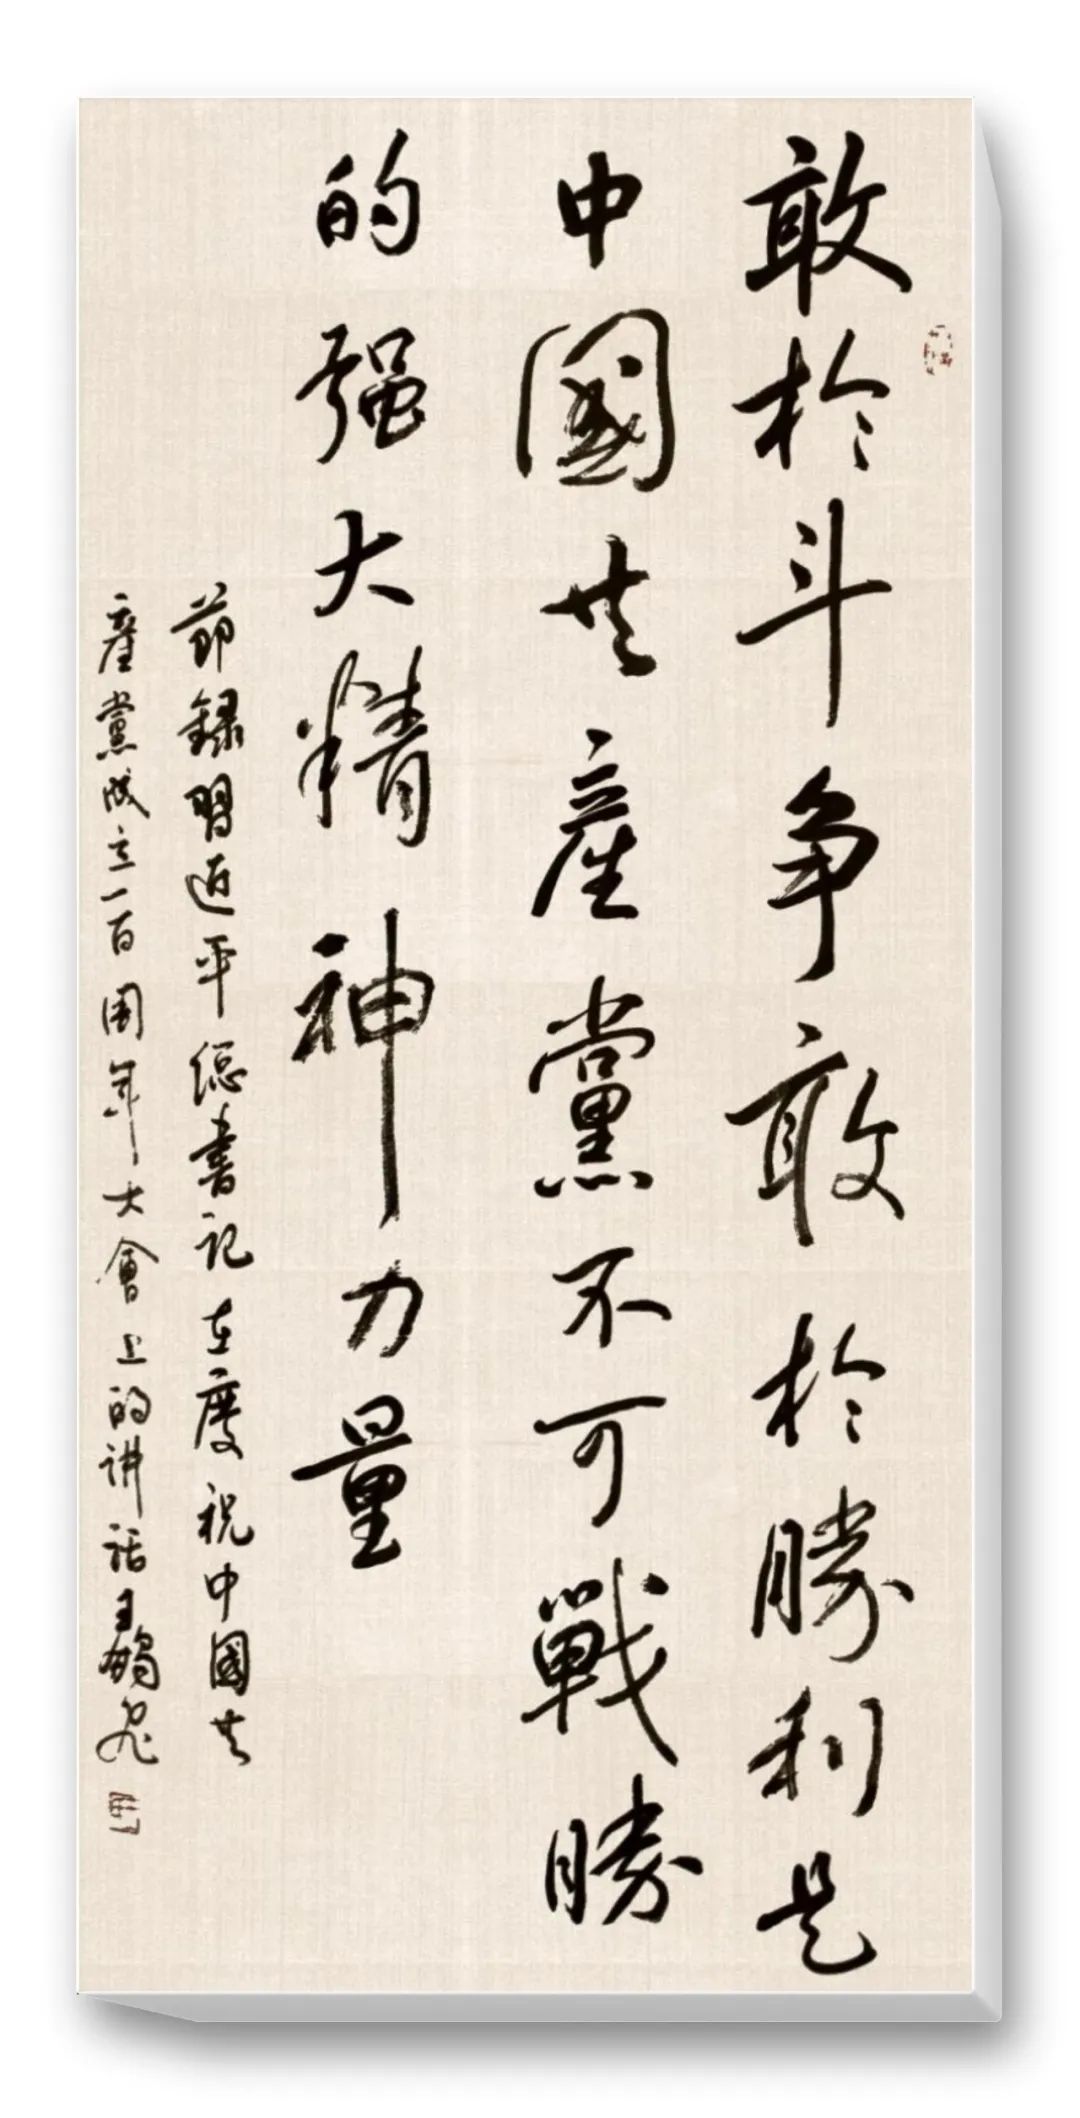 敢於斗争敢於勝利是
中國共產黨不可戰勝
的强大精神力量
節録習近平總書記在慶祝中國共
產黨成立一百周年大會上的讲话王鹢飛